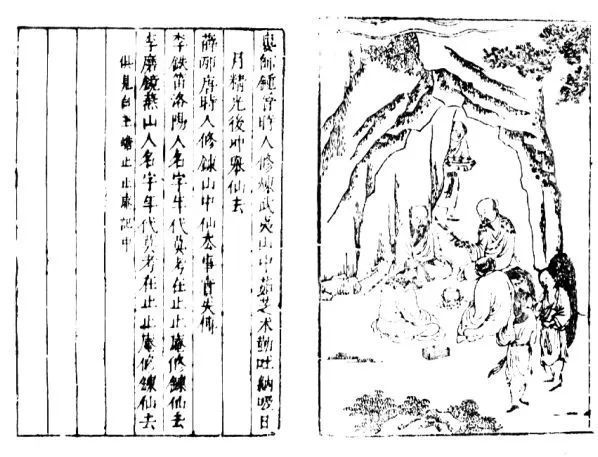 師鍾晉時人修煉武夷山中茹芝术勤吐納日
月精光後冲舉仙去
薛邴唐時人修鍊山中仙去事皆失傳
李鉄笛洛陽人名字年代莫考在止止庵修鍊仙去
李磨鏡燕山人名字年代莫考在止止庵修鍊仙去
俱見白玉蟾止止庵記中